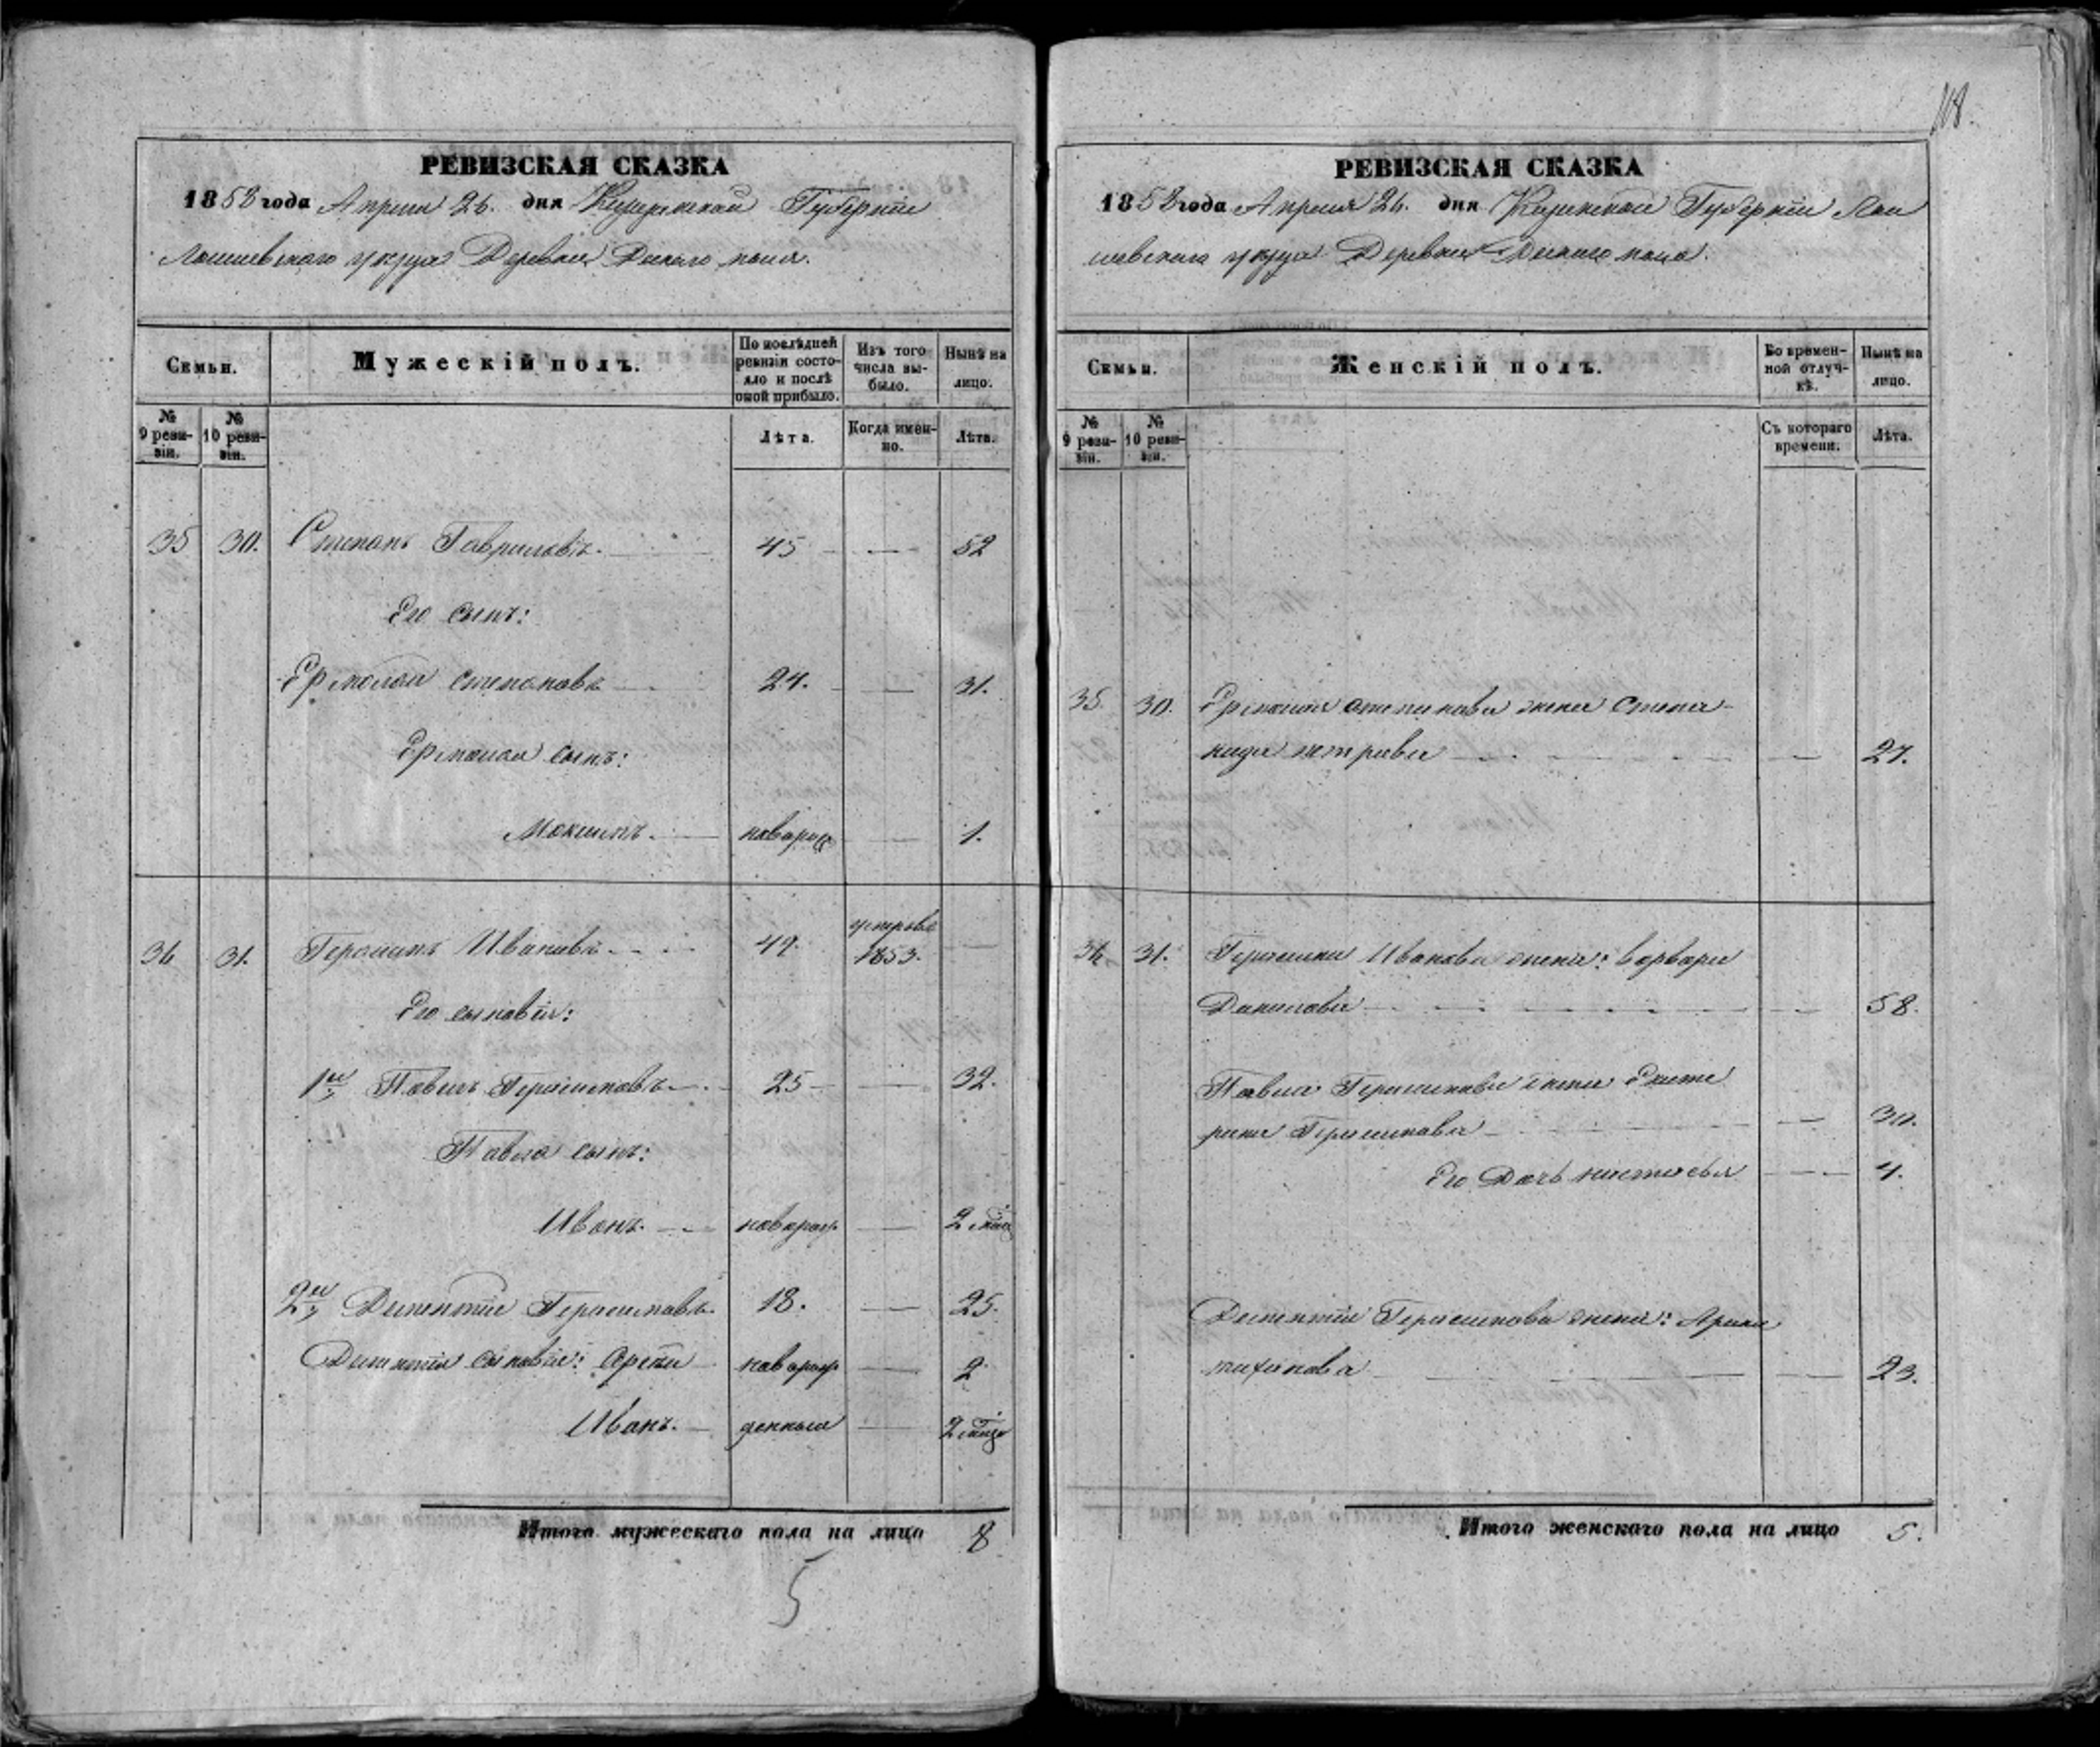 118.
РЕВИЗСКАЯ СКАЗКА
1858 года Апреля 26. дня Казанской Губерніи
Лаишевскаго уезда Деревни Дикаго поля.
Семьи.
Мужескій полъ.
По послѣдней ревизіи состояло и послѣ оной прибыло.
Изъ того числа выбыло.
Нынѣ на лицо.
№ 9 ревизіи.
№ 10 ревизіи.
Лѣта.
Когда именно.
Лѣта.
35 30. Степанъ Гавриловъ. 45 52
Его сынъ:
Ермолай степановъ 24. 31.
Ермолая сынъ:
Максимъ. новорож 1.
36 31. Герасимъ Ивановъ 49. умровъ 1853.
Его сыновья:
1й Павелъ Герасимовъ 25 32.
Павла сынъ:
Иванъ. новорож 2 мец
2й Дементій Герасимовъ. 18. 25.
Дементія сыновья: новорож 2
Иванъ. денныя 2 мец
Итого мужескаго пола на лицо 8
5
РЕВИЗСКАЯ СКАЗКА
1858 года Апреля 26. дня Казанской Губерніи Лаи
шевскаго уезда Деревни Дикаго поля.
Семьи.
Женскій полъ.
Во временной отлучкѣ.
Нынѣ на лицо.
№ 9 ревизіи.
№ 10 ревизіи.
Съ котораго времени.
Лѣта.
35. 30. Ермолая степанова жена Степа-
нида петрова 27.
36. 31. Герасима Иванова жена: варвара
Данилова 58.
Павла Герасимова жена Екате
рина Герасимова 30.
Его Дочь настасья 4.
Дементія Герасимова жена: Арина
тихонова 23.
Итого женскаго пола на лицо 5.